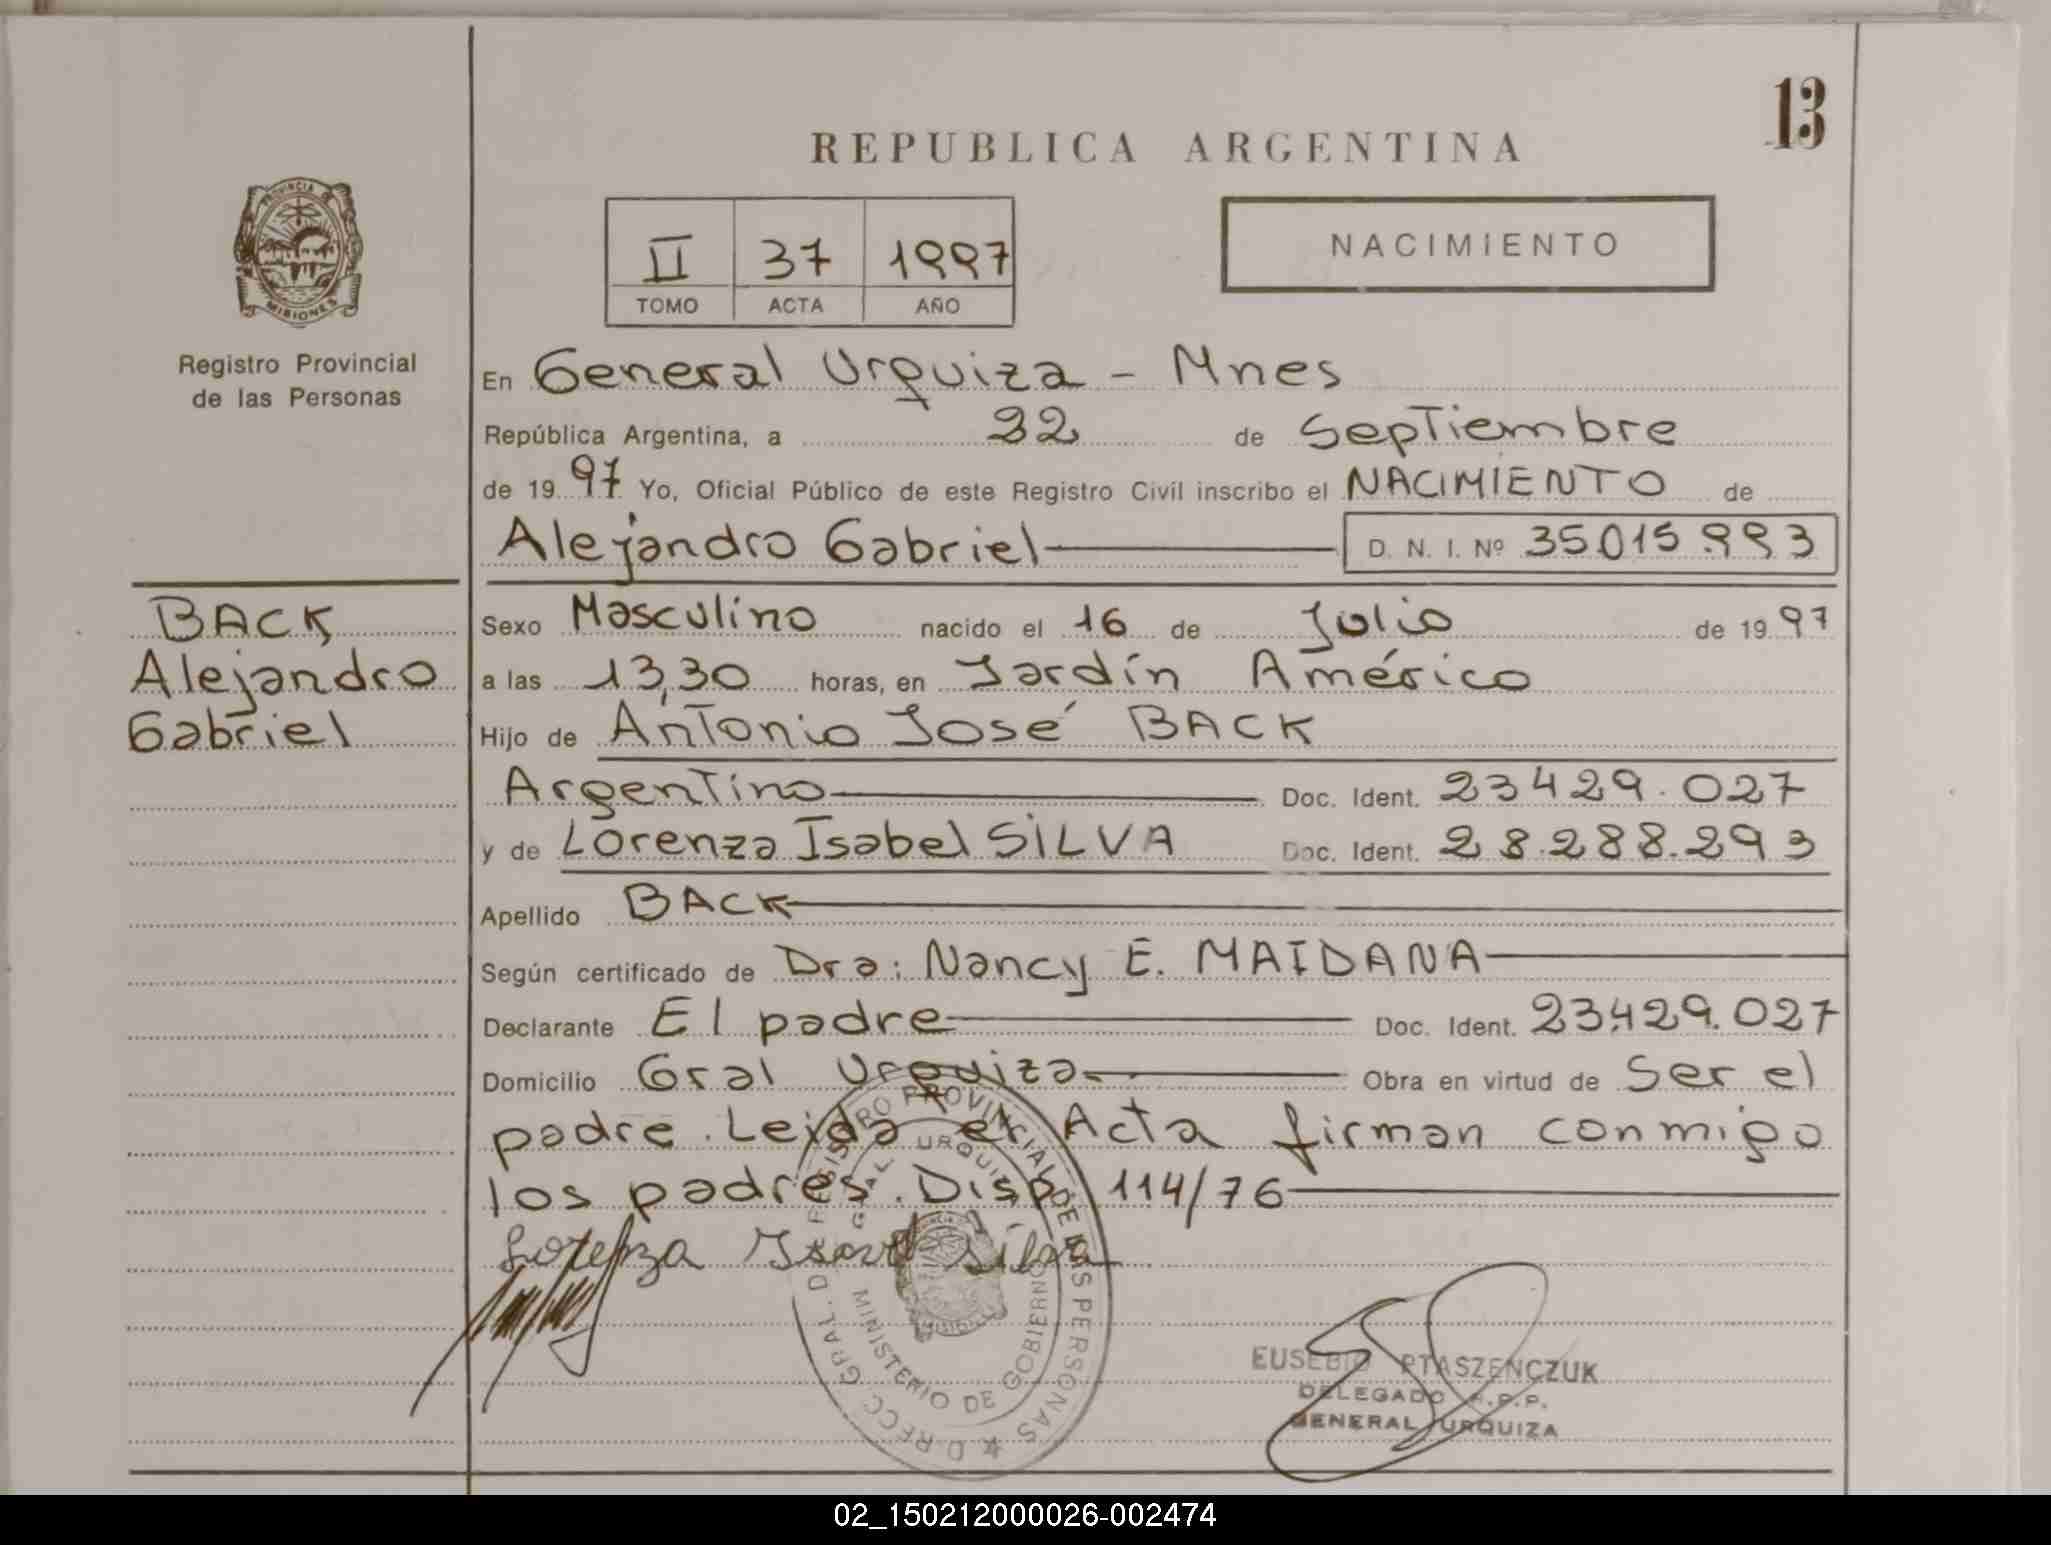 13
REPUBLICA ARGENTINA
PROVINCIA DE
MISIONES
Registro Provincial
de las Personas
II 37 1997
TOMO ACTA AÑO
NACIMIENTO
En General Urquiza - Mnes
República Argentina, a 22 de Septiembre
de 19 97 Yo, Oficial Público de este Registro Civil inscribo el NACIMIENTO de
Alejandro Gabriel D. N. I. Nº 35.015.993
BACK
Alejandro
Gabriel
Sexo Masculino nacido el 16 de Julio de 19 97
a las 13,30 horas, en Jardín América
Hijo de Antonio José BACK
Argentino Doc. Ident. 23429.027
y de Lorenza Isabel SILVA Doc. Ident. 28.288.293
Apellido BACK
Según certificado de Dra: Nancy E. MAIDANA
Declarante El padre Doc. Ident. 23.429.027
Domicilio Gral Urquiza Obra en virtud de Ser el
padre. Leida el Acta firman conmigo
los padres. Disp. 114/76
Lorenza Isabel Silva
DIRECC. GRAL. DE REGISTRO PROVINCIAL DE LAS PERSONAS
GRAL. URQUIZA
MINISTERIO DE GOBIERNO
EUSEBIO PTASZENCZUK
DELEGADO R.P.P.
GENERAL URQUIZA
02_150212000026-002474